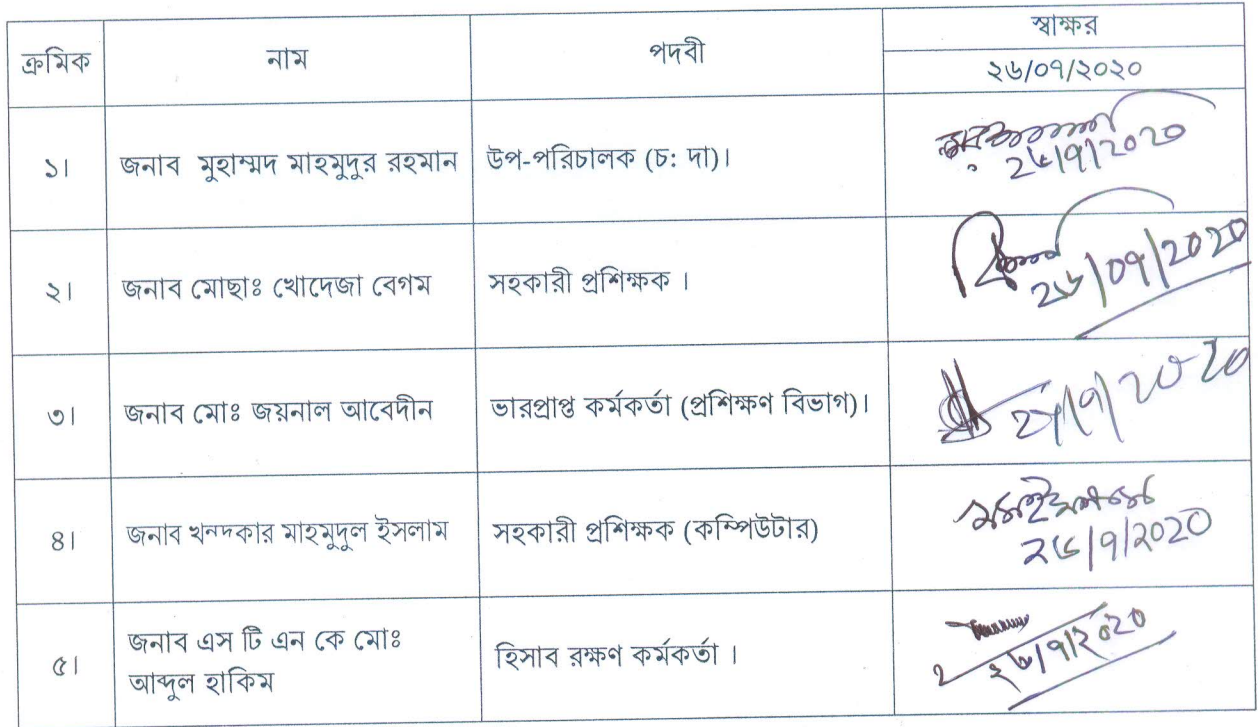 ক্রমিক নাম পদবী স্বাক্ষর
২৬/০৭/২০২০
১। জনাব মুহাম্মদ মাহমুদুর রহমান উপ-পরিচালক (চ: দা)।
২৬/৭/২০২০
২। জনাব মোছাঃ খোদেজা বেগম সহকারী প্রশিক্ষক ।
২৬/০৭/২০২০
৩। জনাব মোঃ জয়নাল আবেদীন ভারপ্রাপ্ত কর্মকর্তা (প্রশিক্ষণ বিভাগ)।
৪। জনাব খনদকার মাহমুদুল ইসলাম সহকারী প্রশিক্ষক (কম্পিউটার)
২৬/৭/২০২০
৫। জনাব এস টি এন কে মোঃ
আব্দুল হাকিম হিসাব রক্ষণ কর্মকর্তা ।
২৬/৭/২০২০